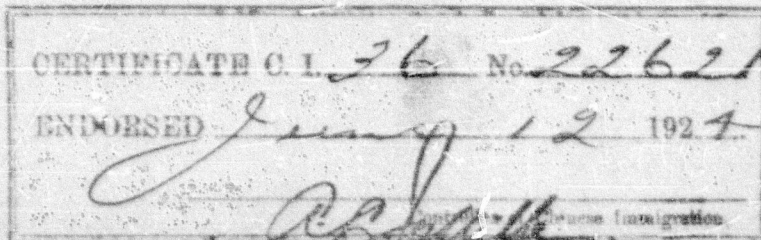 CERTIFICATE C. I. 36 No. 22621
ENDORSED June 12 1924.
Controller of Chinese Immigration